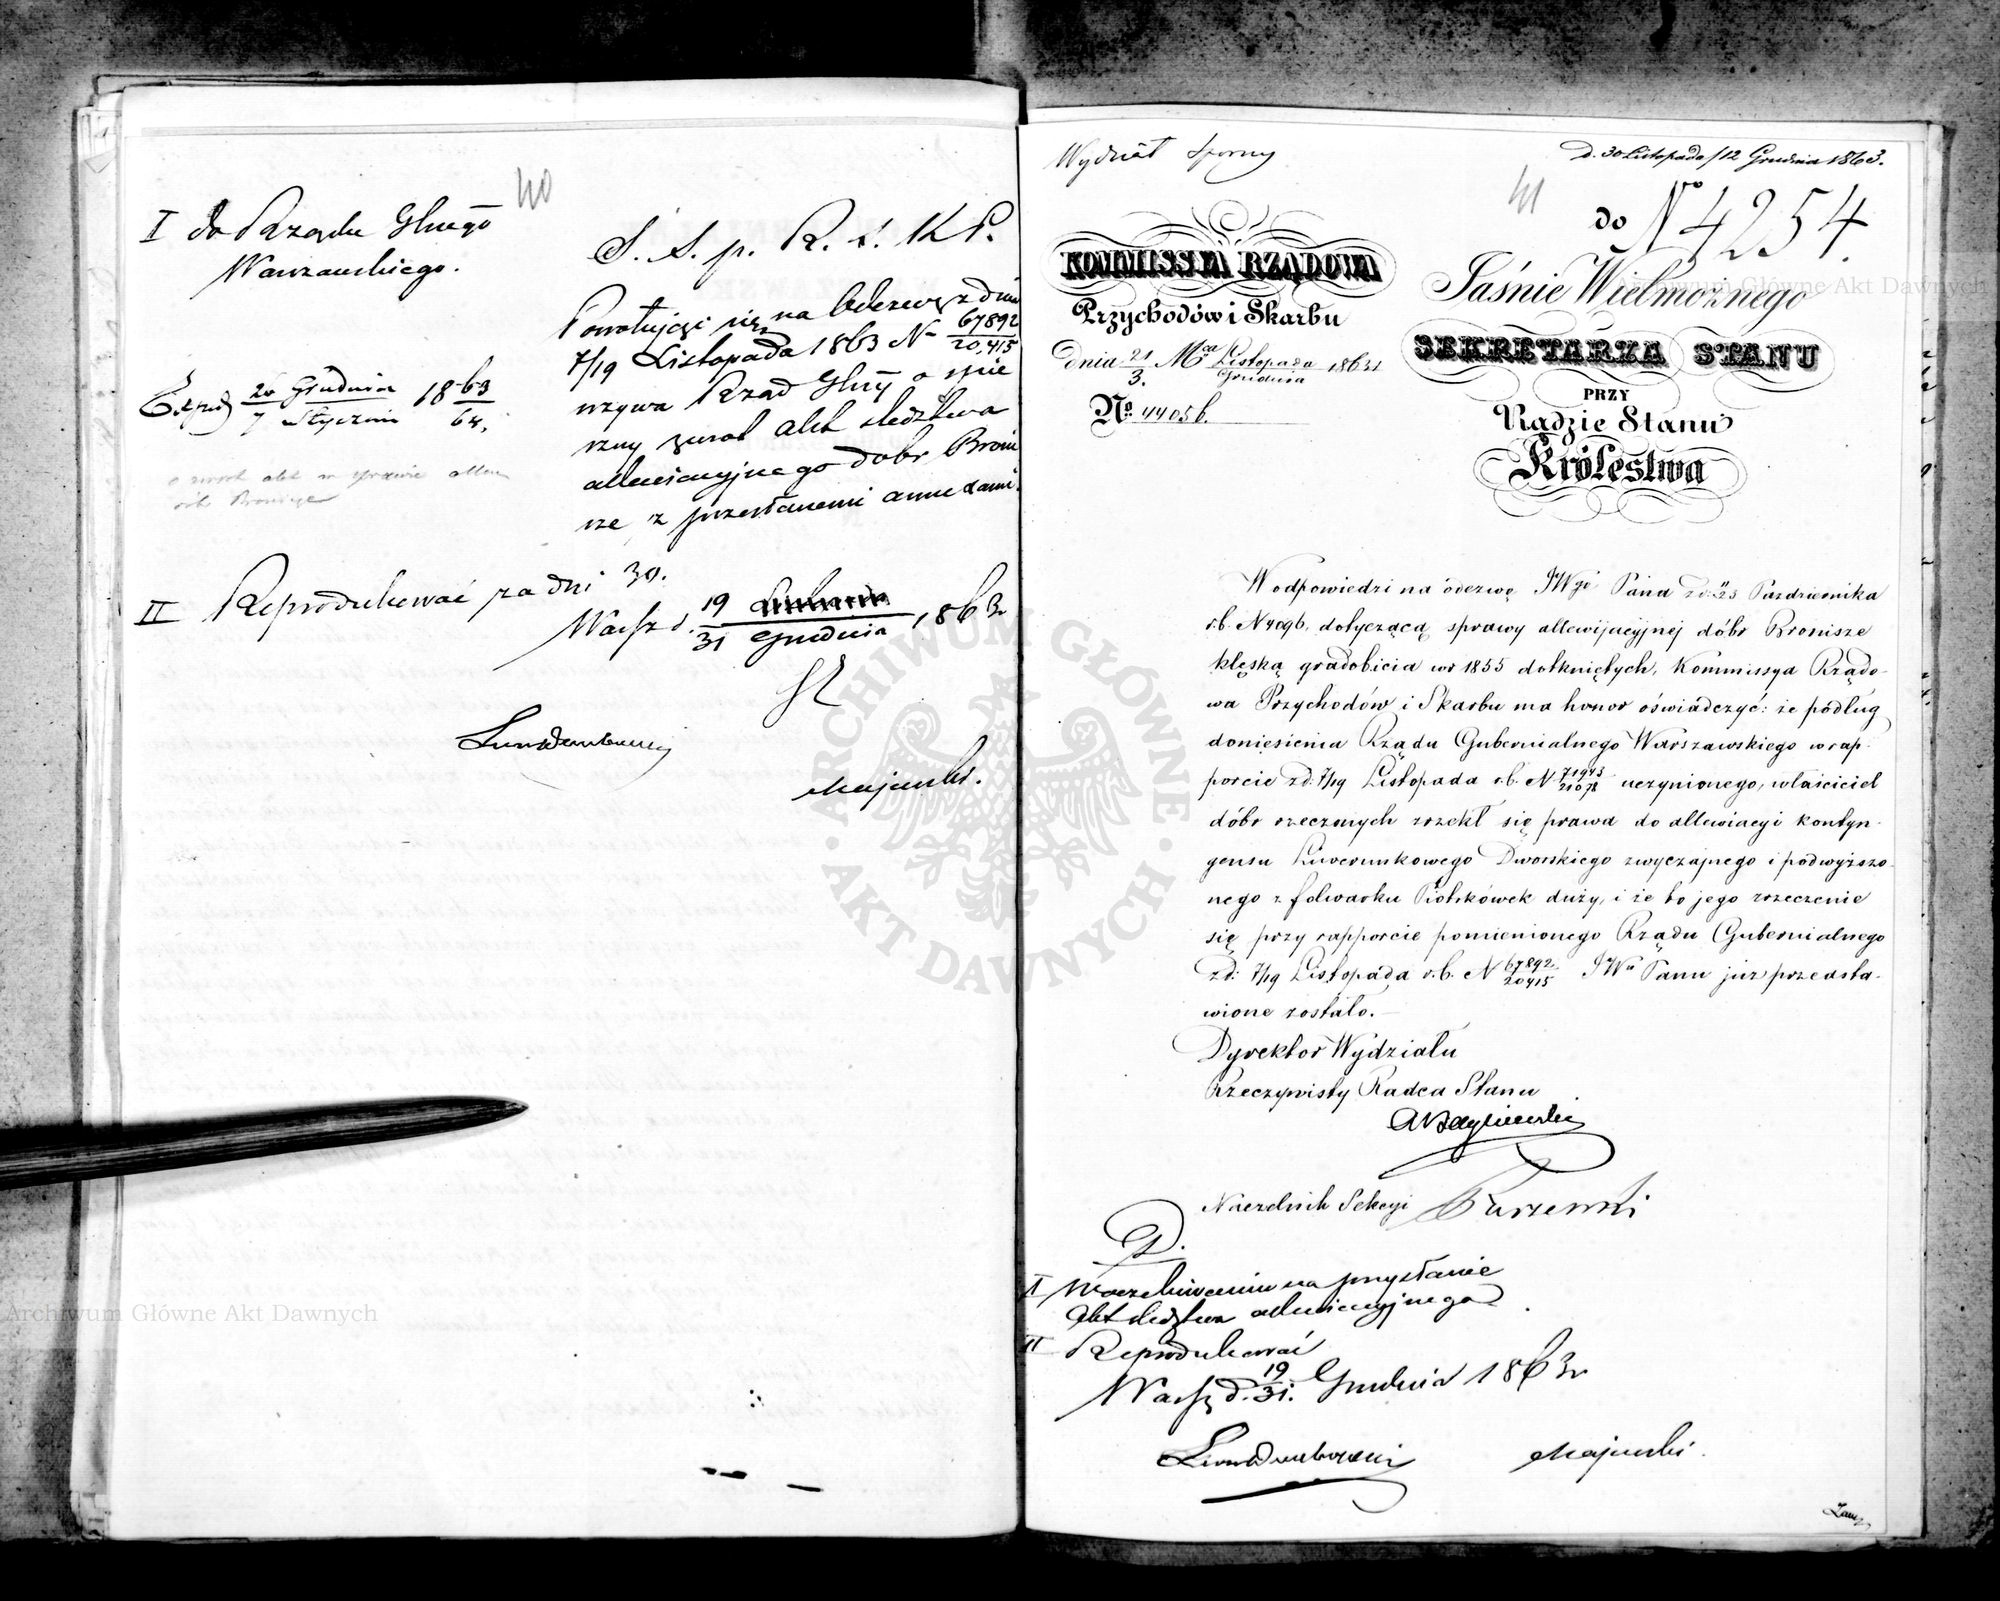 40
I do Rządu Gbnego
Warszawskiego.
Exped 26 Grudnia 1863
7 Stycznia 64.
o zwrot akt w sprawie
dóbr Bronisze
S. S. p. R. S. K P.
Powołując się na Odezwę z dnia
7/19 Listopada 1863 N 67892/20,415
wzywa Rząd Gbny o spie
szny zwrot akt śledztwa
allewiacyjnego dobr Broni
sze, z przesłanemi
II Reprodukować za dni 30.
Warsz d. 19/31 Grudnia 1863 r
Majewski.
Wydział Sporny
D. 30 Listopada/12 Grudnia 1863.
41
do N 4254.
KOMMISSYA RZĄDOWA
Przychodów i Skarbu
dnia 21/3. Mca Listopada/Grudnia 1863 r
No. 44056.
Jaśnie Wielmożnego
SEKRETARZA STANU
PRZY
Radzie Stanu
Królestwa
W odpowiedzi na odezwę JWgo Pana z d: 23 Października
r.b. N 4096, dotyczącą sprawy allewijacyjnej dóbr Bronisze
klęską gradobicia w r 1855 dotkniętych, Kommissya Rządo-
wa Przychodów i Skarbu ma honor oświadczyć: że podług
doniesienia Rządu Gubernialnego Warszawskiego w rap-
porcie z d: 7/19 Listopada r.b. N 71943/21078 uczynionego, właściciel
dóbr rzeczonych zrzekł się prawa do allewiacyi kontyn-
gensu Liwerunkowego Dworskiego zwyczajnego i podwyższo-
nego z folwarku Piotrkówek duży, i że to jego zrzeczenie
się przy rapporcie pomienionego Rządu Gubernialnego
z d: 7/19 Listopada r.b. N 67892/20415 JWu Panu już przedsta-
wione zostało.—
Dyrektor Wydziału
Rzeczywisty Radca Stanu
Naczelnik Sekcyi
D.
I W oczekiwaniu na przysłanie
akt śledztwa allewiacyjnego
II Reprodukować
Warsz d. 19/31. Grudnia 1863 r
Majewski.
ARCHIWUM GŁÓWNE AKT DAWNYCH
Archiwum Główne Akt Dawnych
Archiwum Główne Akt Dawnych